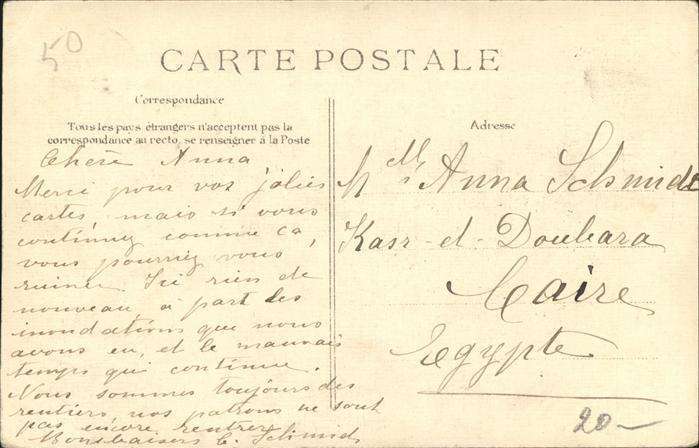 50
CARTE POSTALE
Correspondance
Tous les pays étrangers n'acceptent pas la
correspondance au recto, se renseigner à la Poste
Chère Anna
Merci pour vos jolies
cartes, mais si vous
continuez comme ça
vous pourriez vous
ruiner. Ici rien de
nouveau, à part les
inondations que nous
avons eu, et le mauvais
temps qui continue.
Nous sommes toujours des
rentiers, nos patrons ne sont
pas encore rentrés
Bons baisers E. Schmid
Adresse
Mlle Anna Schmidt
Kasr-el-Doubara
Caire
Egypte
20-